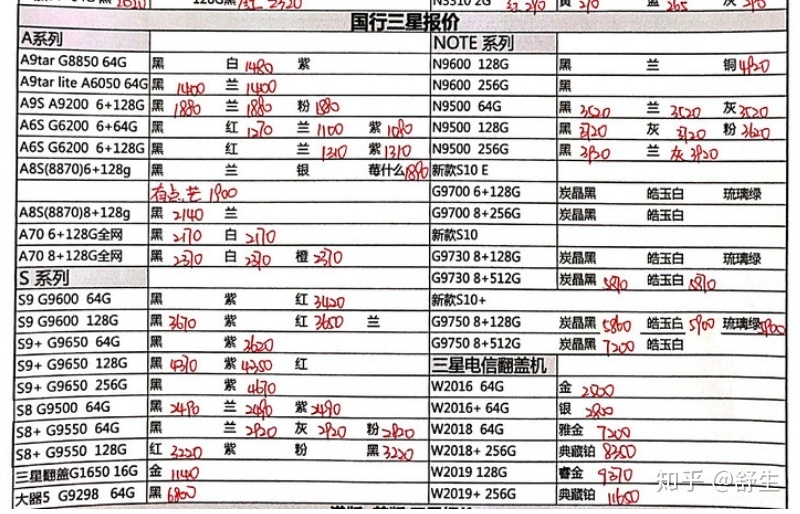 国行三星报价
A系列
A9tar G8850 64G 黑 白 1480 紫
A9tar lite A6050 64G 黑 1400 兰 1400
A9S A9200 6+128G 黑 1880 兰 1880 粉 1880
A6S G6200 6+64G 黑 红 1270 兰 1100 紫 1080
A6S G6200 6+128G 黑 红 兰 1310 紫 1310
A8S(8870)6+128g 黑 兰 银 莓什么1890
有点芒 1900
A8S(8870)8+128g 黑 2140 兰
A70 6+128G全网 黑 2170 白 2170
A70 8+128G全网 黑 2370 白 2370 橙 2370
S 系列
S9 G9600 64G 黑 紫 红 3420
S9 G9600 128G 黑 3670 紫 红 3650 兰
S9+ G9650 64G 黑 紫 3620
S9+ G9650 128G 黑 4370 紫 4350 红
S9+ G9650 256G 黑 紫 4670
S8 G9500 64G 黑 2490 兰 2490 紫 2490
S8+ G9550 64G 黑 兰 2920 灰 2920 粉 2820
S8+ G9550 128G 红 3220 紫 粉 黑 3220
三星翻盖G1650 16G 金 1140
大器5 G9298 64G 黑 6800
NOTE 系列
N9600 128G 黑 兰 铜 4920
N9600 256G 黑
N9500 64G 黑 3520 兰 3520 灰 3520
N9500 128G 黑 3720 灰 3720 粉 3620
N9500 256G 黑 3920 兰 灰 3920
新款S10 E
G9700 6+128G 炭晶黑 皓玉白 琉璃绿
G9700 8+256G 炭晶黑 皓玉白
新款S10
G9730 8+128G 炭晶黑 皓玉白 琉璃绿
G9730 8+512G 炭晶黑 5870 皓玉白 5870
新款S10+
G9750 8+128G 炭晶黑 5860 皓玉白 5900 琉璃绿 5900
G9750 8+512G 炭晶黑 7200 皓玉白
三星电信翻盖机
W2016 64G 金 2500
W2016+ 64G 银 2800
W2018 64G 雅金 7200
W2018+ 256G 典藏铂 8350
W2019 128G 睿金 9370
W2019+ 256G 典藏铂 11650
知乎 @舒生